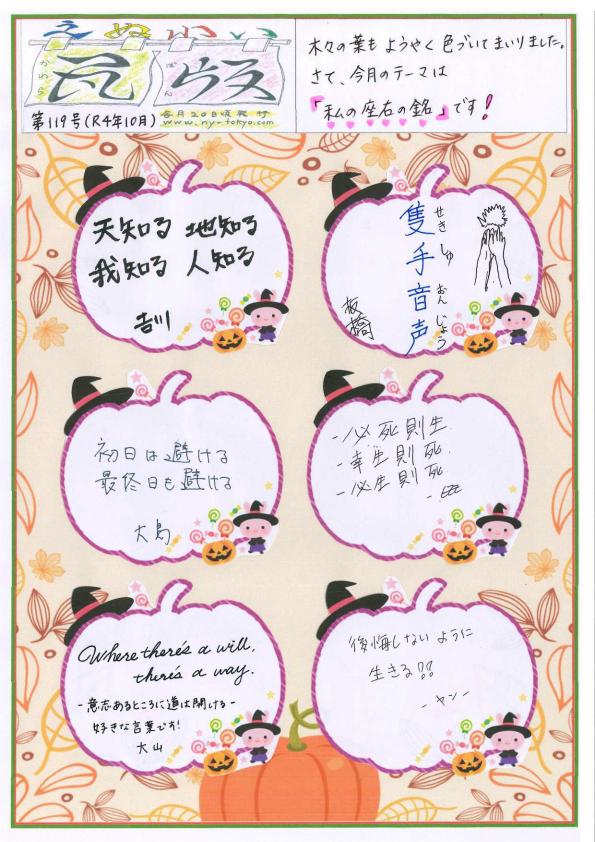 えぬわい
かわら
ばん
瓦
第119号(R4年10月)
毎月20日頃発行
www.ny-tokyo.com
木々の葉も ようやく 色づいてまいりました。
さて、今月のテーマは
「私の座右の銘」です!
天知る 地知る
我知る 人知る
吉川
隻手音声
せきしゅ
おんじょう
板橋
初日は避ける
最終日も避ける
大島
-必死則生
-幸生則死
-必生則死
Where there's a will,
there's a way.
-意志あるところに道は開ける-
好きな言葉です!
大山
後悔しないように
生きる!!
-ヤン-